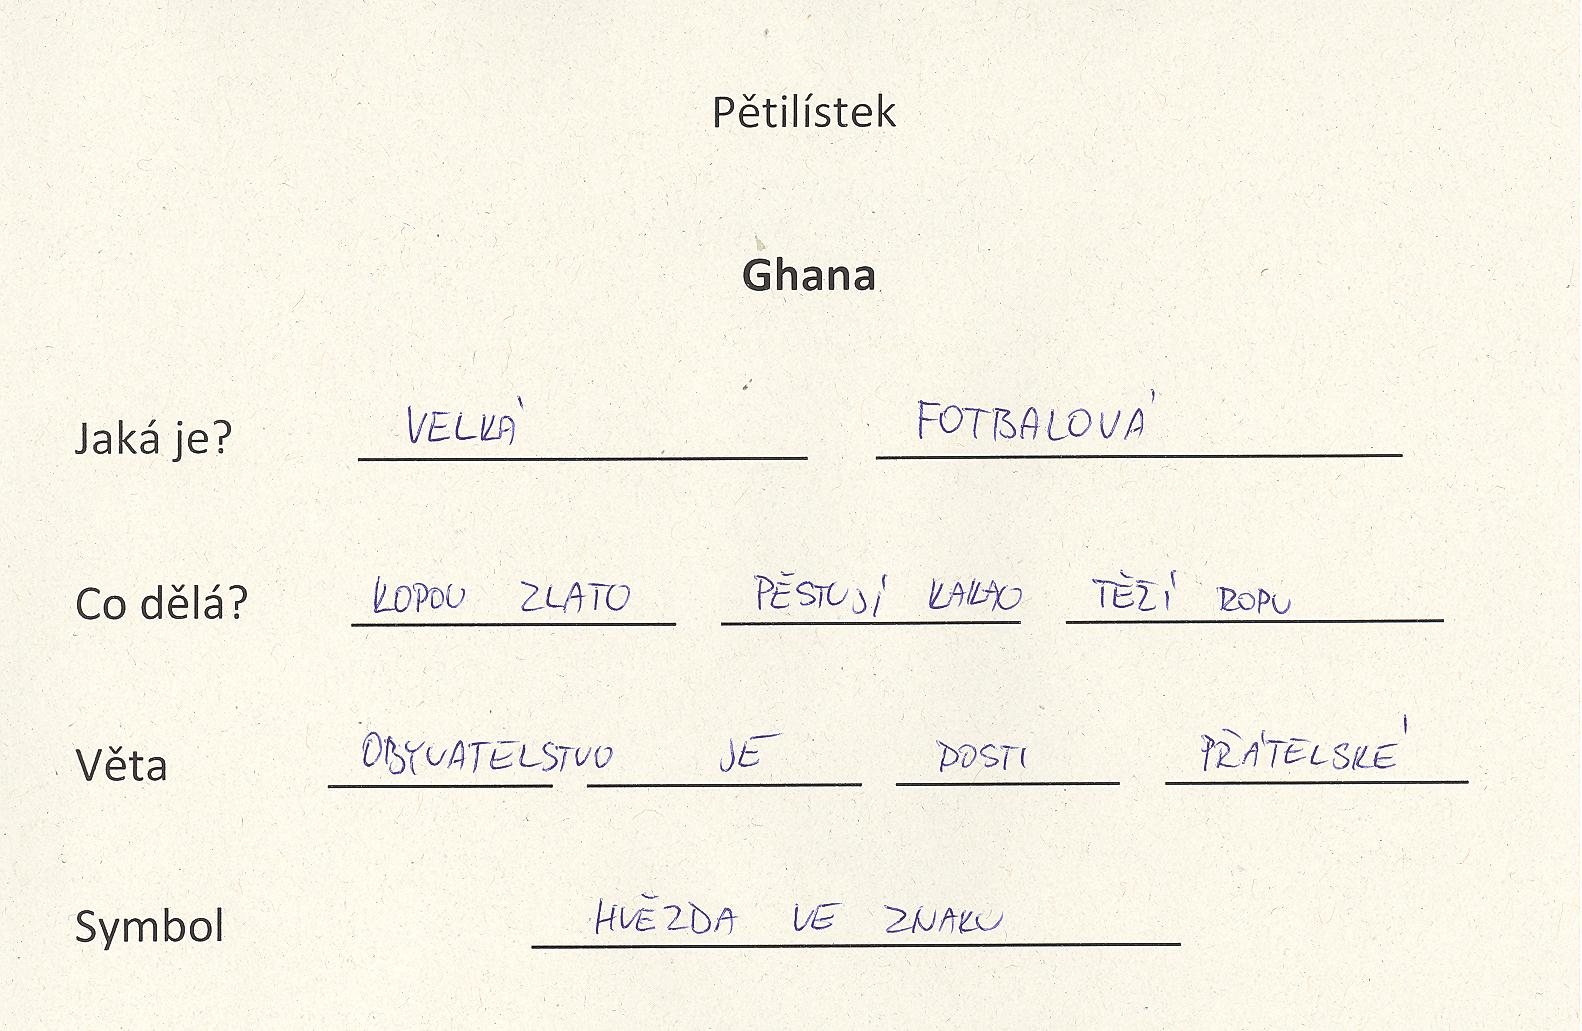 Pětilístek
Ghana
Jaká je? VELKÁ FOTBALOVÁ
Co dělá? KOPOU ZLATO PĚSTUJÍ KAKAO TĚŽÍ ROPU
Věta OBYVATELSTVO JE DOSTI PŘÁTELSKÉ
Symbol HVĚZDA VE ZNAKU